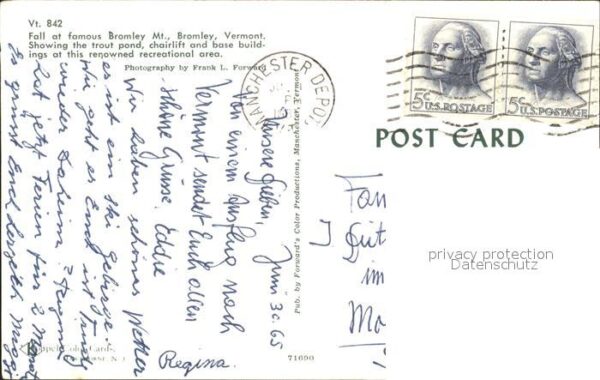 Vt. 842
Fall at famous Bromley Mt., Bromley, Vermont.
Showing the trout pond, chairlift and base build-
ings at this renowned recreational area.
Photography by Frank L. Forward
MANCHESTER DEPOT
5c U.S. POSTAGE
5c U.S. POSTAGE
POST CARD
Pub. by Forward's Color Productions, Manchester, Vermont
71690
Juni 30 65
Unsere Lieben,
Von einem Ausflug nach
Vermont sendet Euch allen
schöne Grüsse Eddie
Wir haben schönes Wetter
es ist ein Ski Gebirge.
Wie geht es Euch ist Trudy
wieder daheim?
Hat jetzt Ferien für 2
Es grüsst Euch herzlich
Regina.
Fam
im
privacy protection
Datenschutz
Color Cards